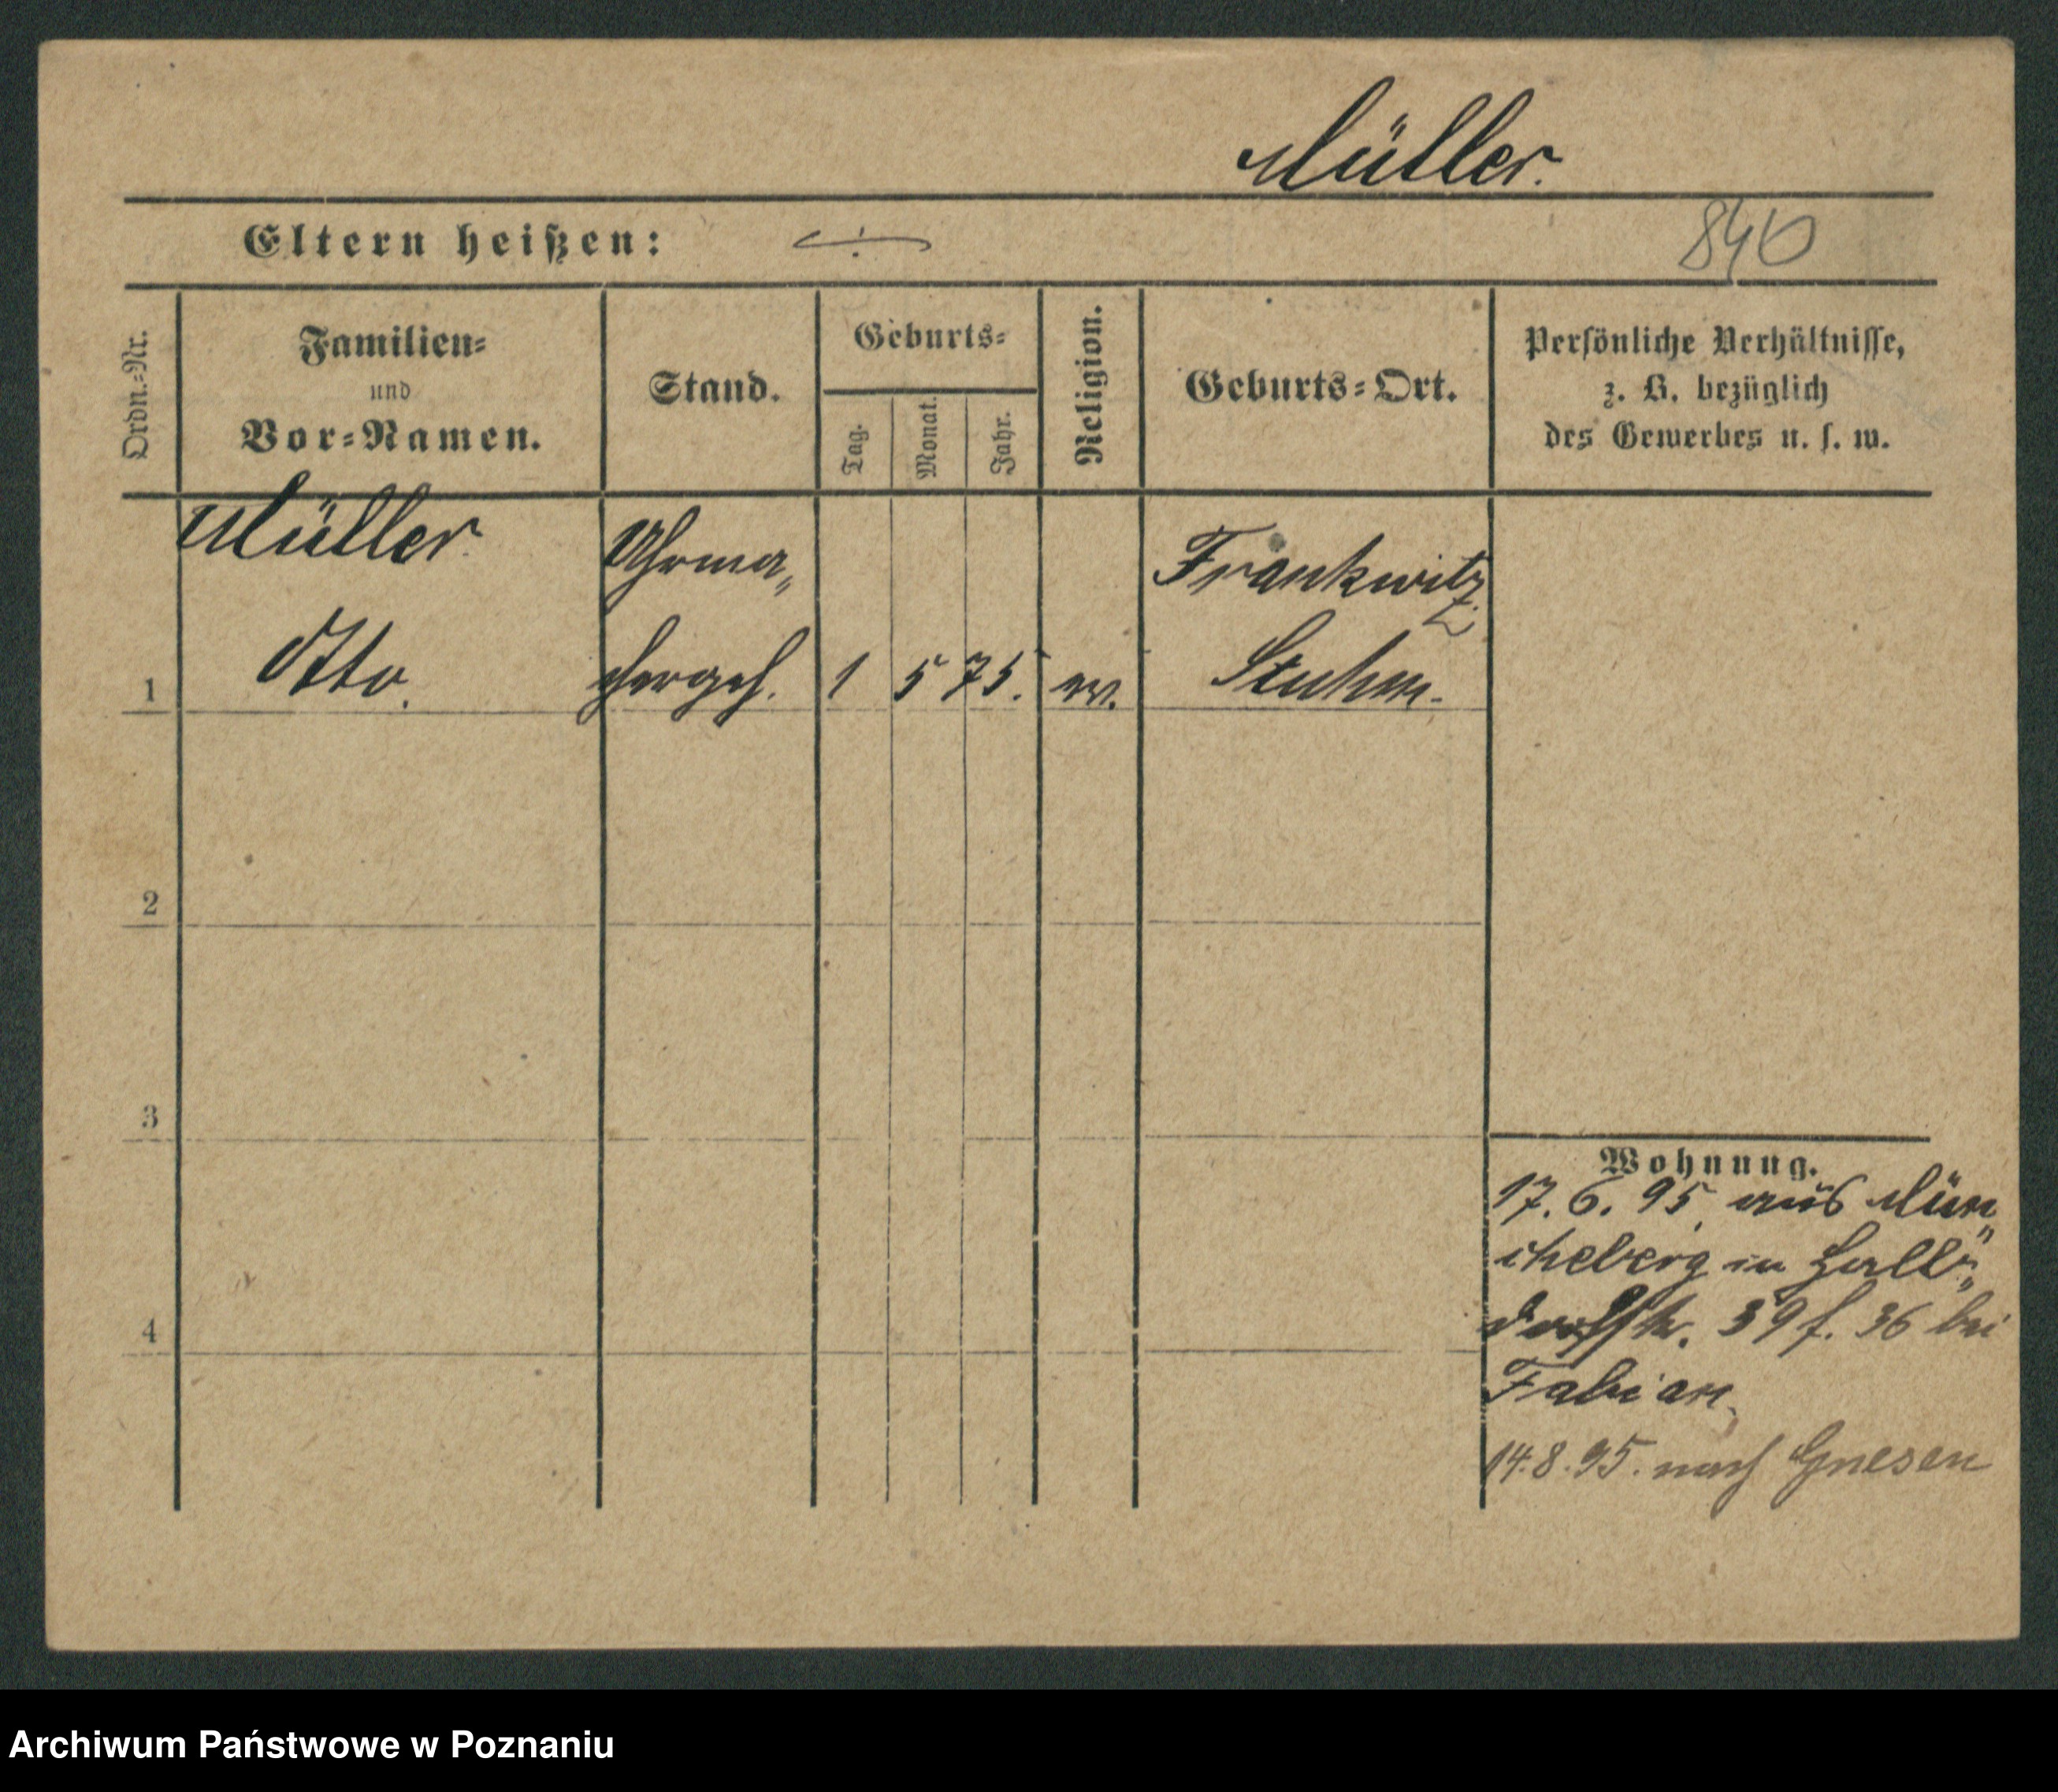 Müller.
Eltern heißen: ÷
840
Ordn.-Nr.
Familien-
und
Vor-Namen.
Stand.
Geburts-
Tag.
Monat.
Jahr.
Religion.
Geburts-Ort.
Persönliche Verhältnisse,
z. B. bezüglich
des Gewerbes u. s. w.
Müller.
Otto.
Uhrma„
chergeh.
1 5 75. ev.
Frankwitz
Stuhm.
1
2
3
4
Wohnung.
17. 6. 95 aus Mün„
cheberg in Halb„
dorfstr. 39 f. 36 bei
Fabian
14.8.95. nach Gnesen
Archiwum Państwowe w Poznaniu